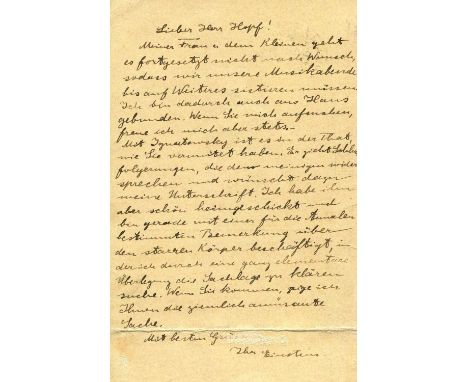 Lieber Herr Hopf!
Meiner Frau u dem Kleinen geht
es fortgesetzt nicht nach Wunsch,
sodass wir unsere Musikabende
bis auf Weiteres sistieren müssen
Ich bin dadurch auch ans Haus
gebunden. Wenn Sie mich aufsuchen,
freue ich mich aber stets.—
Mit Ignatowsky ist es in der That,
wie Sie vermutet haben. Er zieht
folgerungen, die den meinigen wider
sprechen und wünscht dazu
meine Unterschrift. Ich habe ihm
aber schön heimgeschickt und
bin gerade mit einer für die Annalen
bestimmten Bemerkung über
den starren Körper beschäftigt, in
der ich durch eine ganz elementare
Überlegung die Sachlage zu klären
suche. Wenn Sie kommen, zeige ich
Ihnen die ziemlich amüsante
Sache.
Mit besten Grüssen
Ihr Einstein